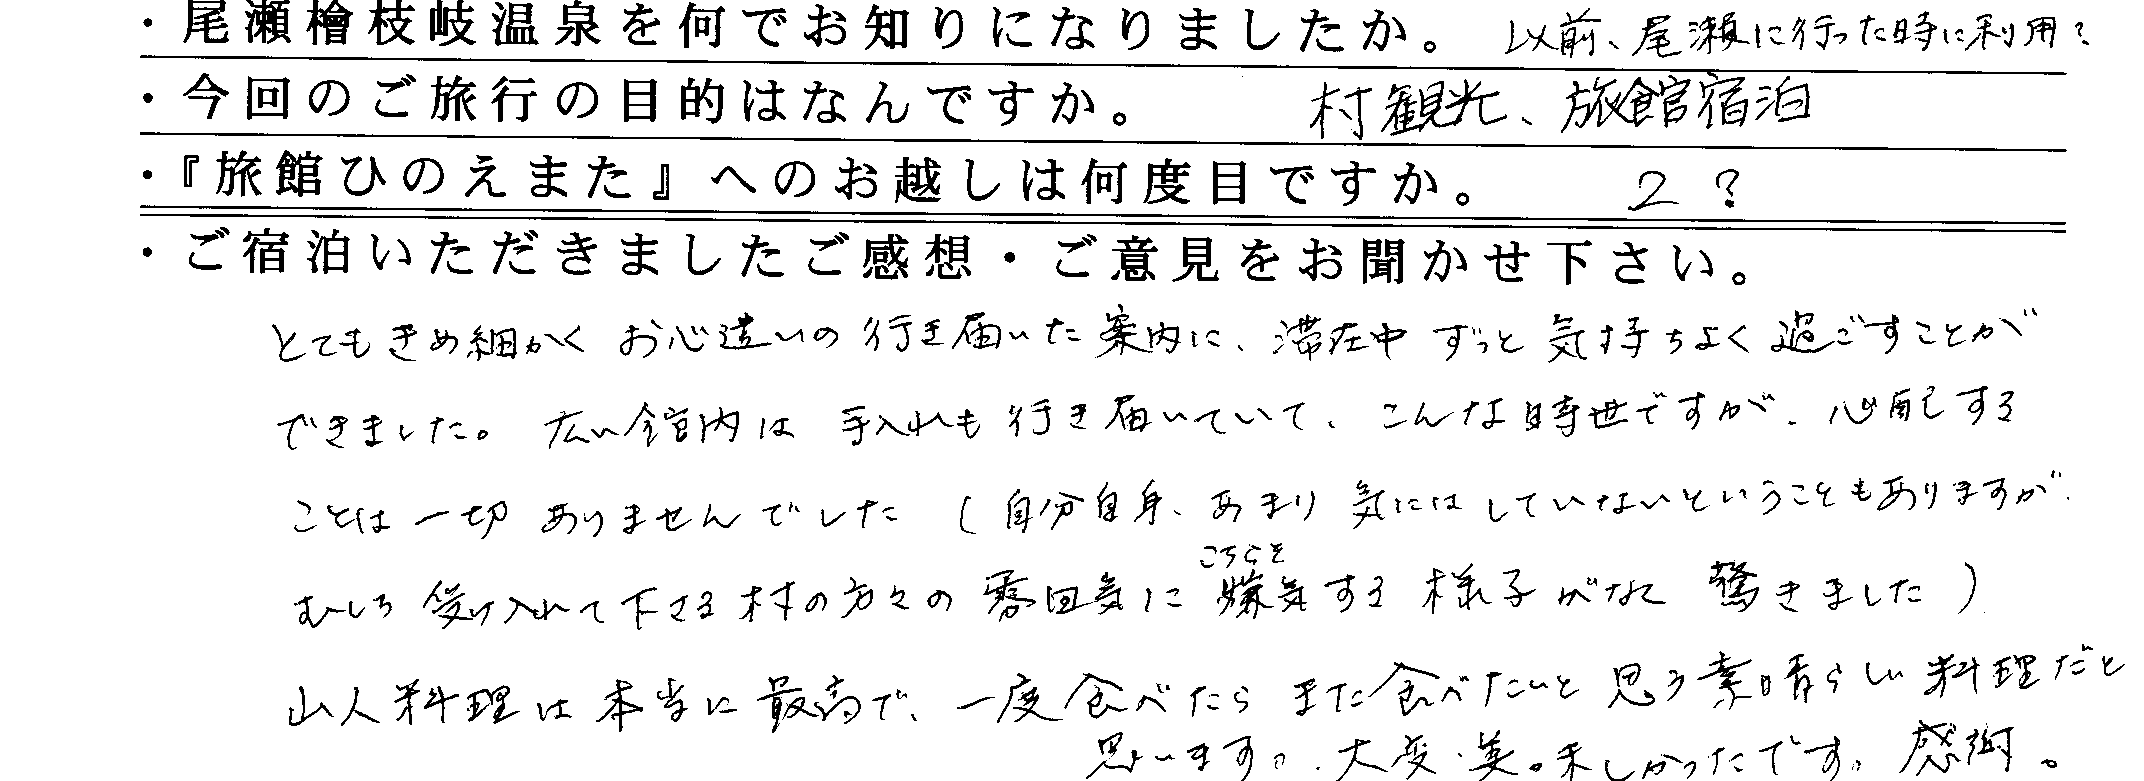 ・尾瀬檜枝岐温泉を何でお知りになりましたか。 以前、尾瀬に行った時に利用?
・今回のご旅行の目的はなんですか。 村観光、旅館宿泊
・『旅館ひのえまた』へのお越しは何度目ですか。 2?
・ご宿泊いただきましたご感想・ご意見をお聞かせ下さい。
とてもきめ細かくお心遣いの行き届いた案内に、滞在中ずっと気持ちよく過ごすことが
できました。広い館内は手入れも行き届いていて、こんな時世ですが、心配する
ことは一切ありませんでした(自分自身、あまり気にはしていないということもありますが、
こちらを
むしろ受け入れて下さる村の方々の雰囲気に嫌気する様子がなく驚きました)
山人料理は本当に最高で、一度食べたらまた食べたいと思う素晴らしい料理だと
思います。大変美味しかったです。感謝。